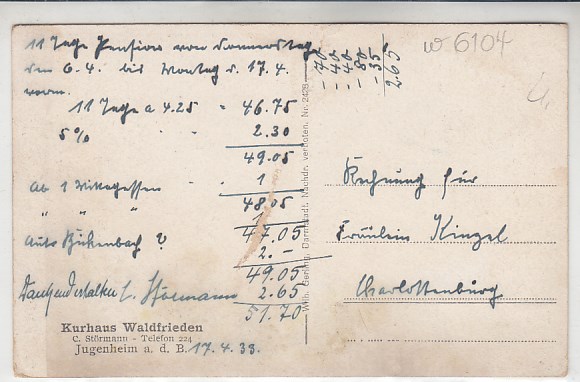 11 Tage Pension von Donnerstag
den 6.4. bis Montag d. 17.4.
vorm.
11 Tage a 4.25 = 46.75
5% " " 2.30
49.05
Ab 1 Mittagessen " 1
48.05
" " " 1
47.05
Auto Bickenbach 2.-
49.05
Dankend erhalten C. Störmann 2.65
51.70
Kurhaus Waldfrieden
C. Störmann - Telefon 224
Jugenheim a. d. B. 17.4.33.
- 70
- 40
- 40
- 80
- 35
2.65
Darmstadt. Nachdr. verboten. Nr. 2428
w 6104
Rechnung für
Fräulein Kinzel
Charlottenburg